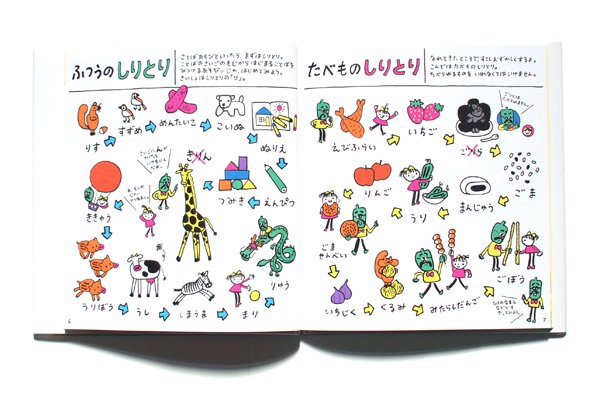 ふつうのしりとり
ことばあそびといったら、まずはしりとり。
ことばのさいごのもじから はじまることばを
みつけるあそび。じゃ、はじめてみよう。
さいしょはしりとりの「り」。
りす
すずめ
めんたいこ
こいぬ
ぬりえ
えんぴつ
つみき
きりん
ききゅう
うりぼう
うし
しまうま
まり
りゅう
6
たべものしりとり
なれてきたところで、すこしむずかしくするよ。
こんどはたべものしりとり。
たべられるものを いわなくてはいけません。
えびふらい
いちご
ごりら
ごま
まんじゅう
うり
りんご
ごま
せんべい
いちじく
くるみ
みたらしだんご
ごぼう
7